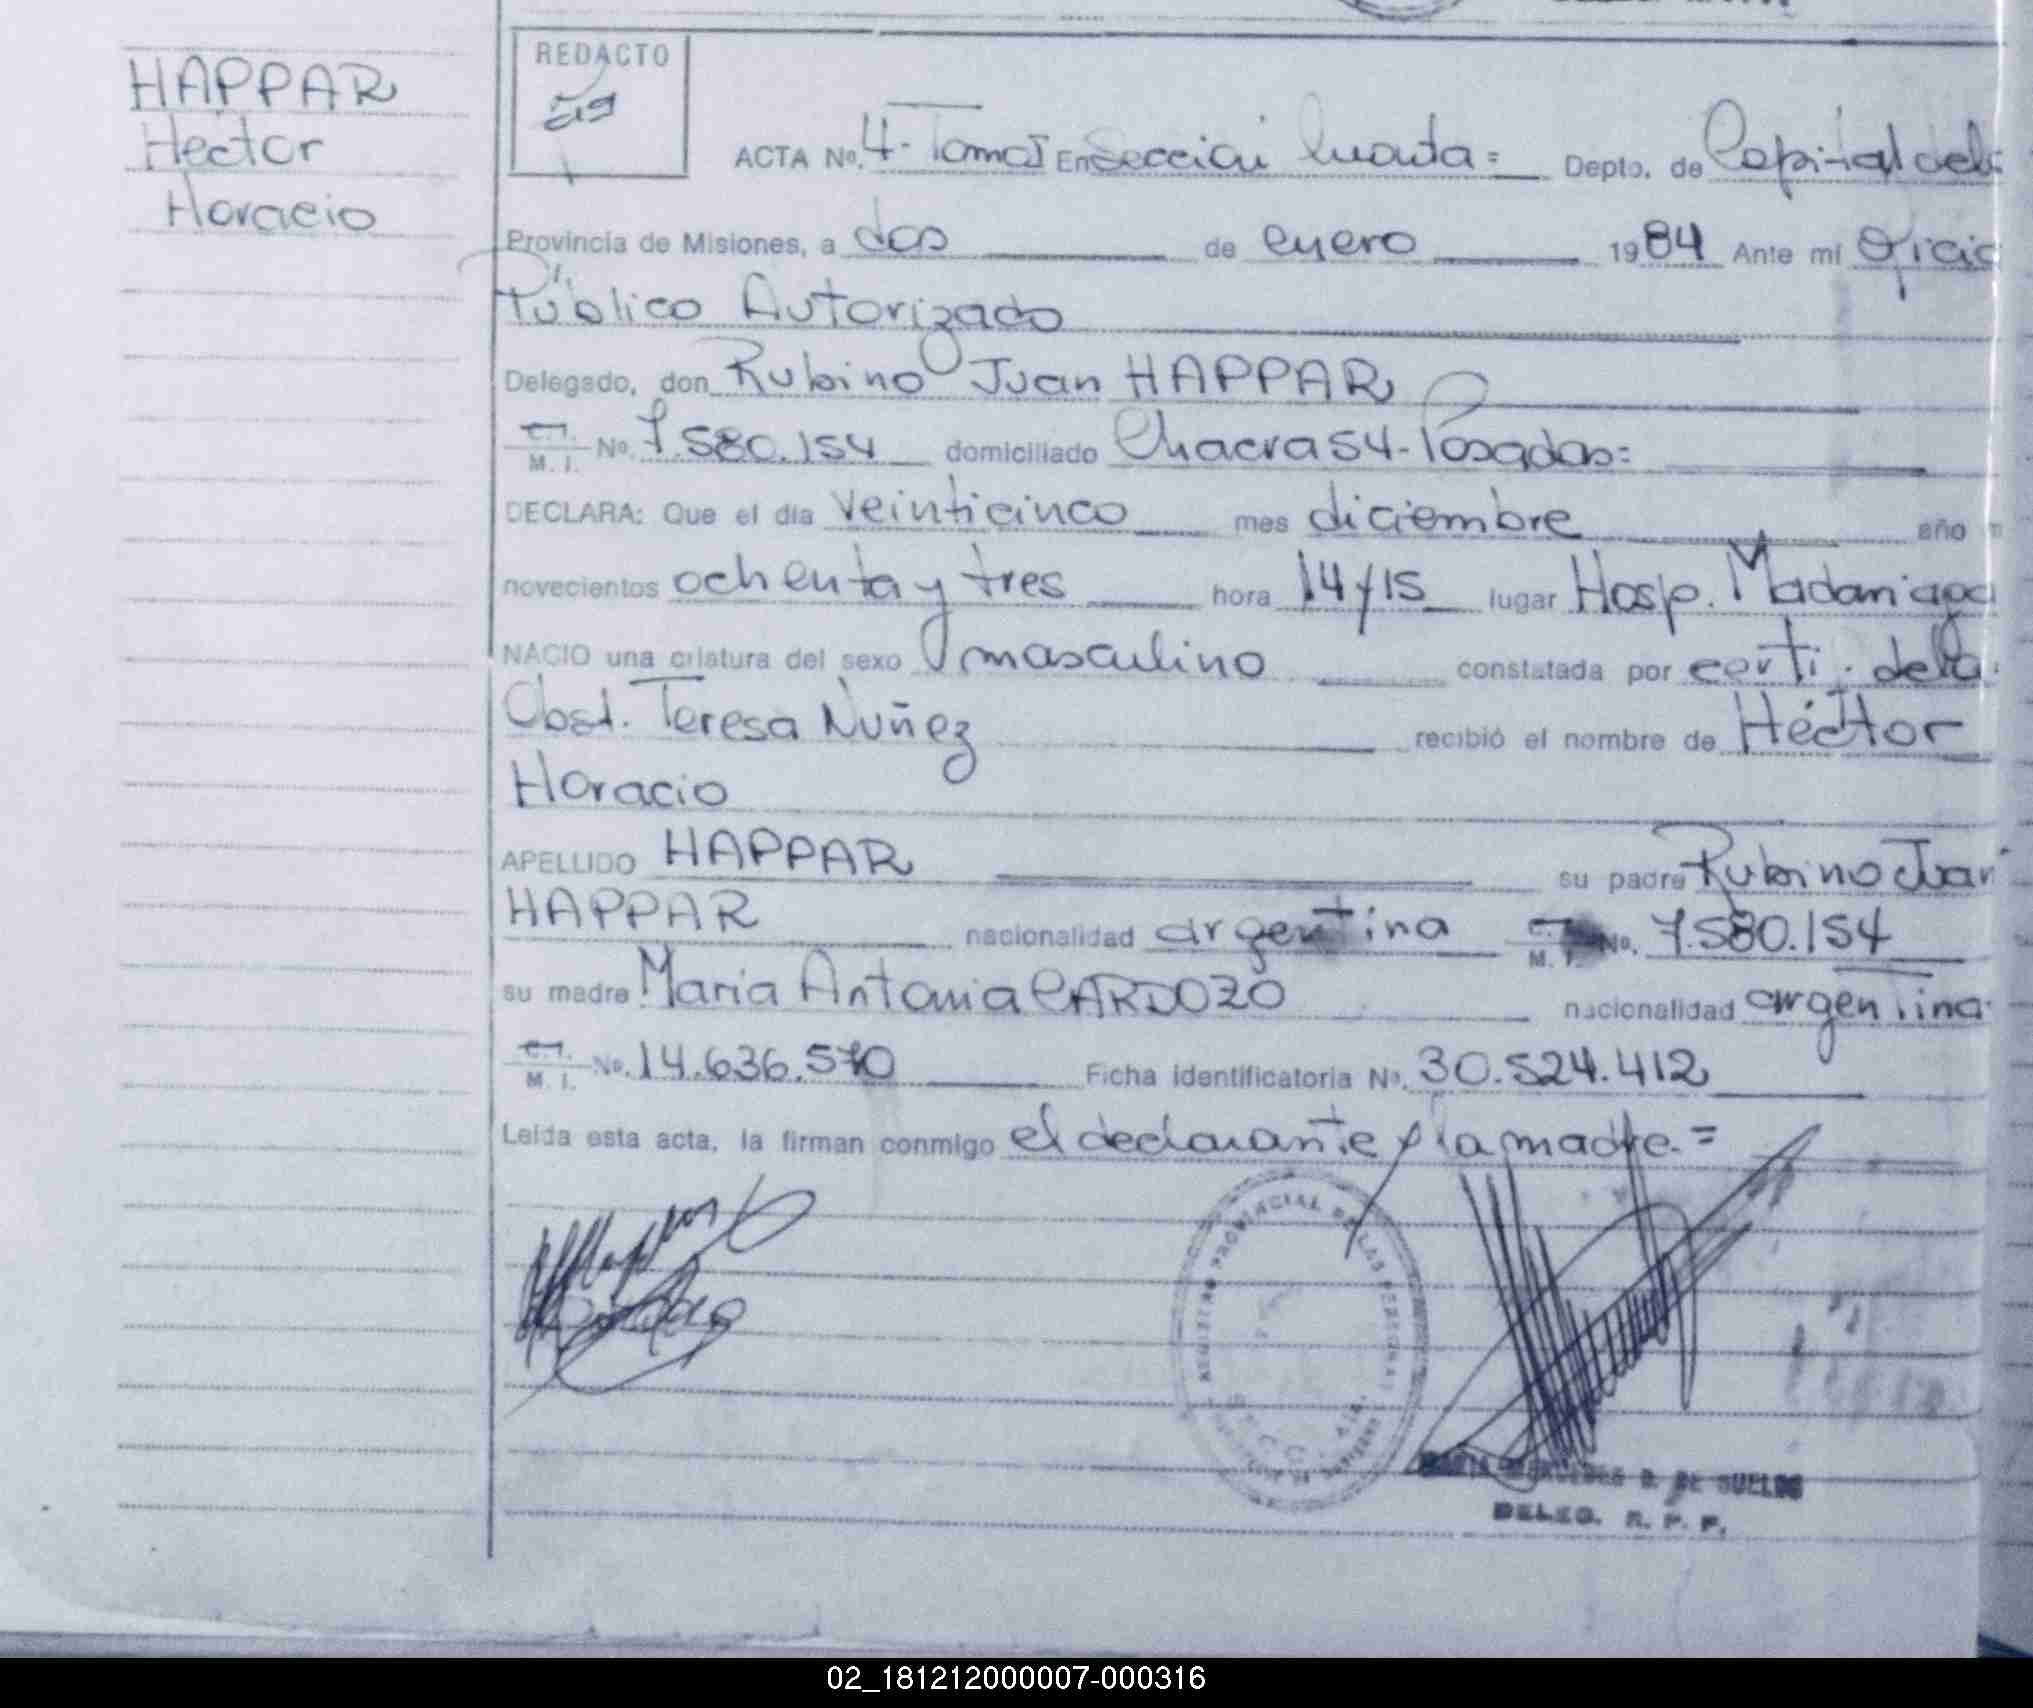 HAPPAR
Hector
Horacio
REDACTO
ACTA No. 4- Tomo I En Sección Cuarta = Depto. de Capital de
Provincia de Misiones, a dos de enero 1984 Ante mí Oficia
Público Autorizado
Delegado, don Rubino Juan HAPPAR
C.I. M. I. No. 7.580.154 domiciliado Chacra 54- Posadas=
DECLARA: Que el día veinticinco mes diciembre año m
novecientos ochenta y tres hora 14 y 15 lugar Hosp. Madariaga
NACIO una criatura del sexo masculino constatada por certi. de la
Obst. Teresa Nuñez recibió el nombre de Héctor
Horacio
APELLIDO HAPPAR su padre Rubino Juan
HAPPAR nacionalidad argentina C.I. M. I. No. 7.580.154
su madre Maria Antonia CARDOZO nacionalidad argentina
C.I. M. I. No. 14.636.570 Ficha identificatoria No. 30.524.412
Leída esta acta, la firman conmigo el declarante y la madre.=
REGISTRO PROVINCIAL DE LAS PERSONAS
MARIA MERCEDES D. DE SUELDO
DELEG. R. P. P.
02_181212000007-000316